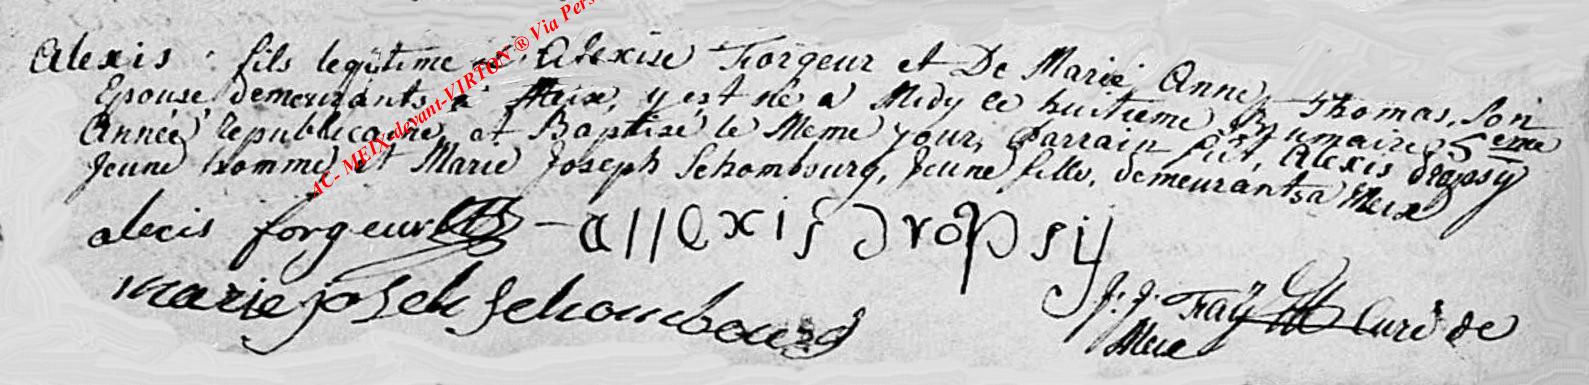 Alexis fils legitime de Alexise Forgeur et De Marie Anne Thomas, Son
Epouse, demeurants a Meix, y est né a Midy le huitieme Brumaire 5eme
Année republicaine, et Baptisé le Meme jour, Parrain fut, Alexis dropsy
jeune homme, et Marie Joseph Schombourg, jeune fille, demeurants a Meix
alecis forgeur - allexis dropsij
marie josech schombourg
J: J: Faÿ Curé de
Meix
AC- MEIX-devant-VIRTON ® Via Pers